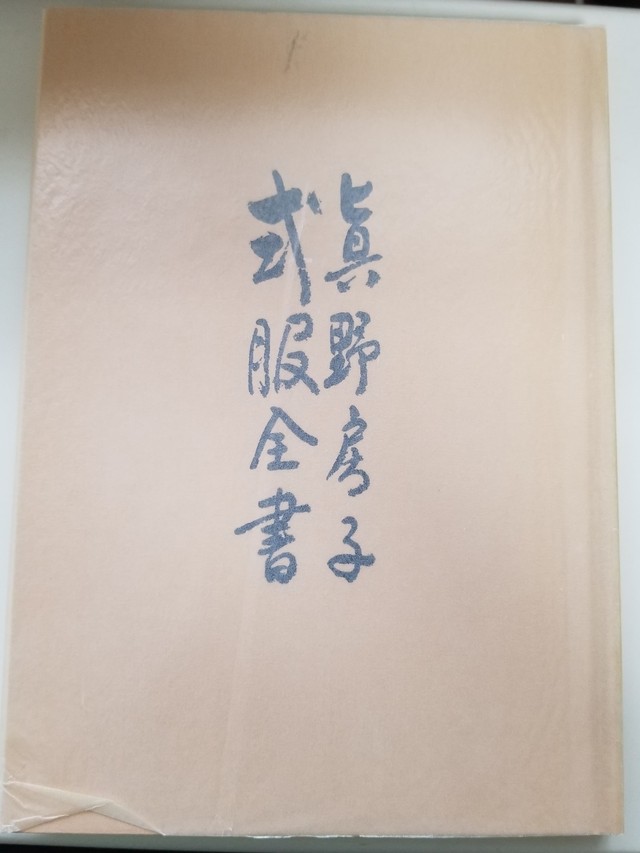 眞野房子
式服全書